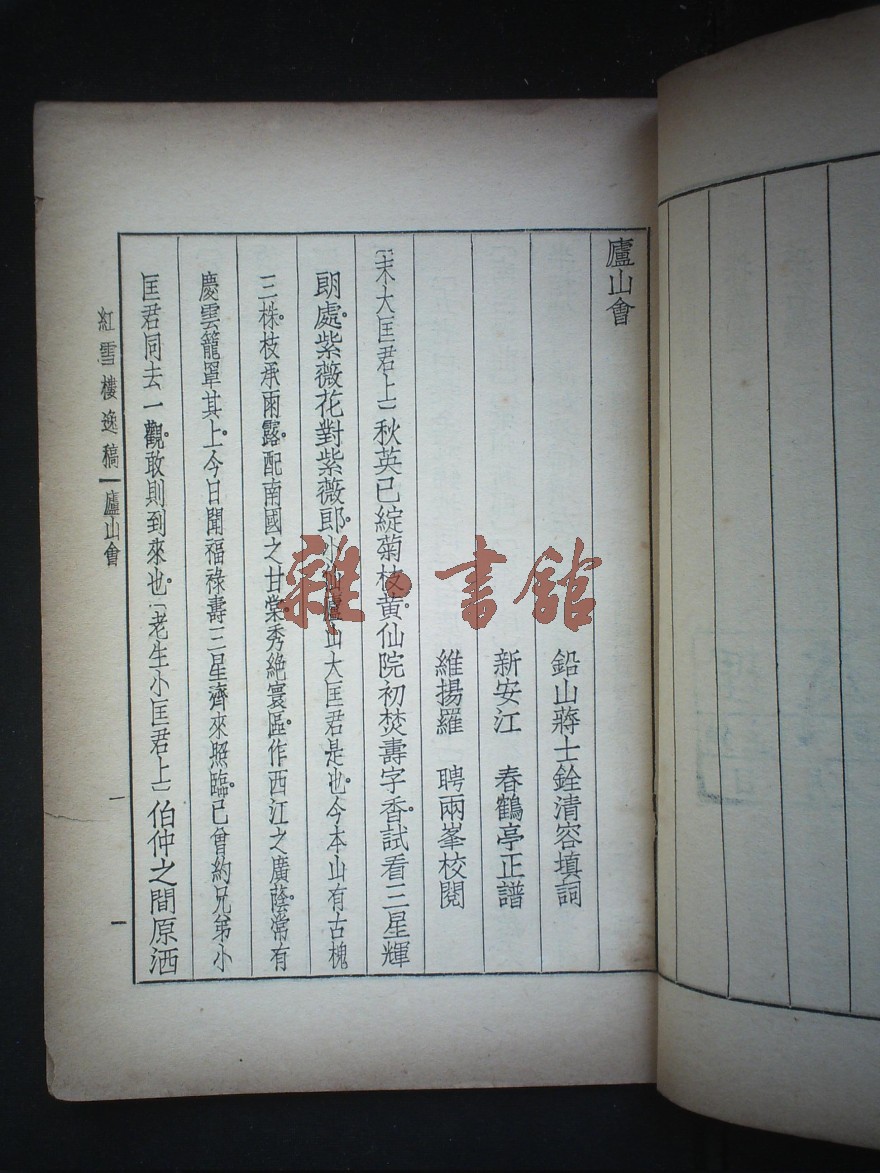 廬山會
鉛山蔣士銓清容填詞
新安江　春鶴亭正譜
維揚羅　聘兩峯校閱
〔末大匡君上〕秋英已綻菊枝黃。仙院初焚壽字香。試看三星輝
朗處。紫薇花對紫薇郎。小仙廬山大匡君是也。今本山有古槐
三株。枝承雨露。配南國之甘棠。秀絶寰區。作西江之廣蔭。常有
慶雲籠罩其上。今日聞福祿壽三星齊來照臨。已曾約兄弟小
匡君同去一觀。敢則到來也。〔老生小匡君上〕伯仲之間原洒
紅雪樓逸稿—廬山會
一
一
雜·書館